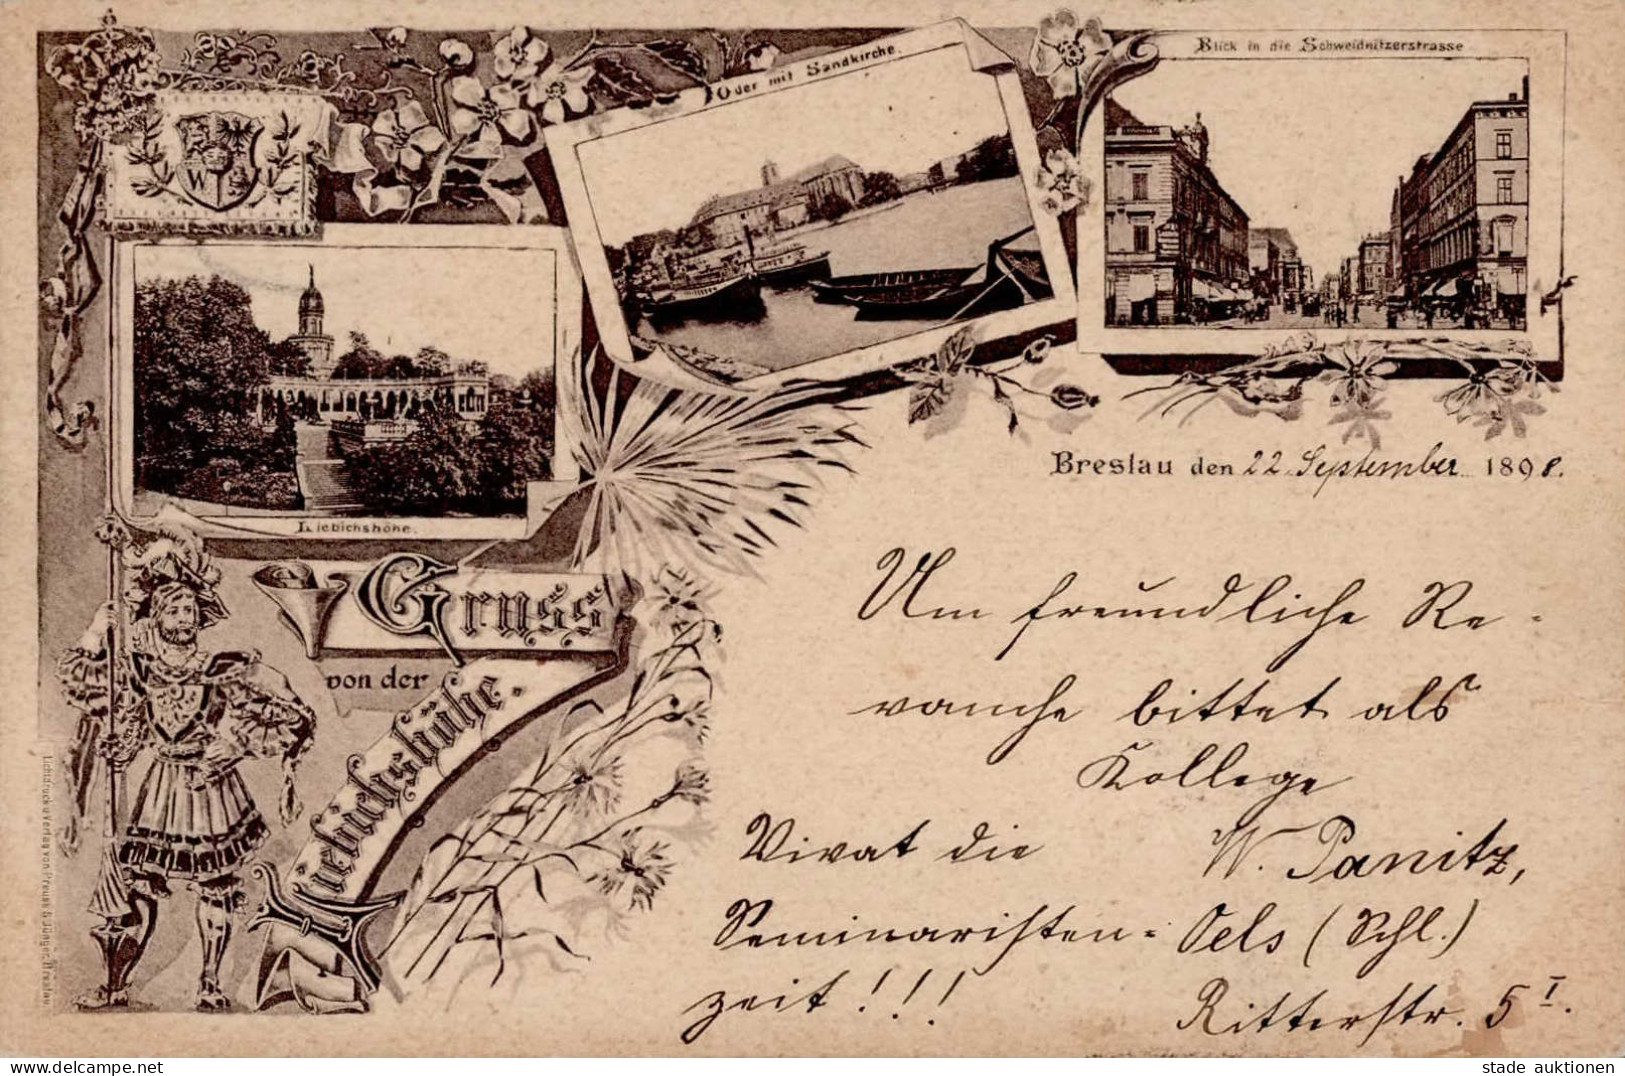 Oder mit Sandkirche.
Blick in die Schweidnitzerstrasse
W
Liebichshöhe.
Gruss
von der
Liebichshöhe.
Lichtdruck u Verlag von Preuss & Jünger, Breslau
Breslau den 22. September 1898.
Um freundliche Re-
vanche bittet als
Kollege
W. Panitz,
Oels (Schl.)
Ritterstr. 5 I.
Vivat die
Seminaristen-
zeit!!!
delcampe.net
stade auktionen